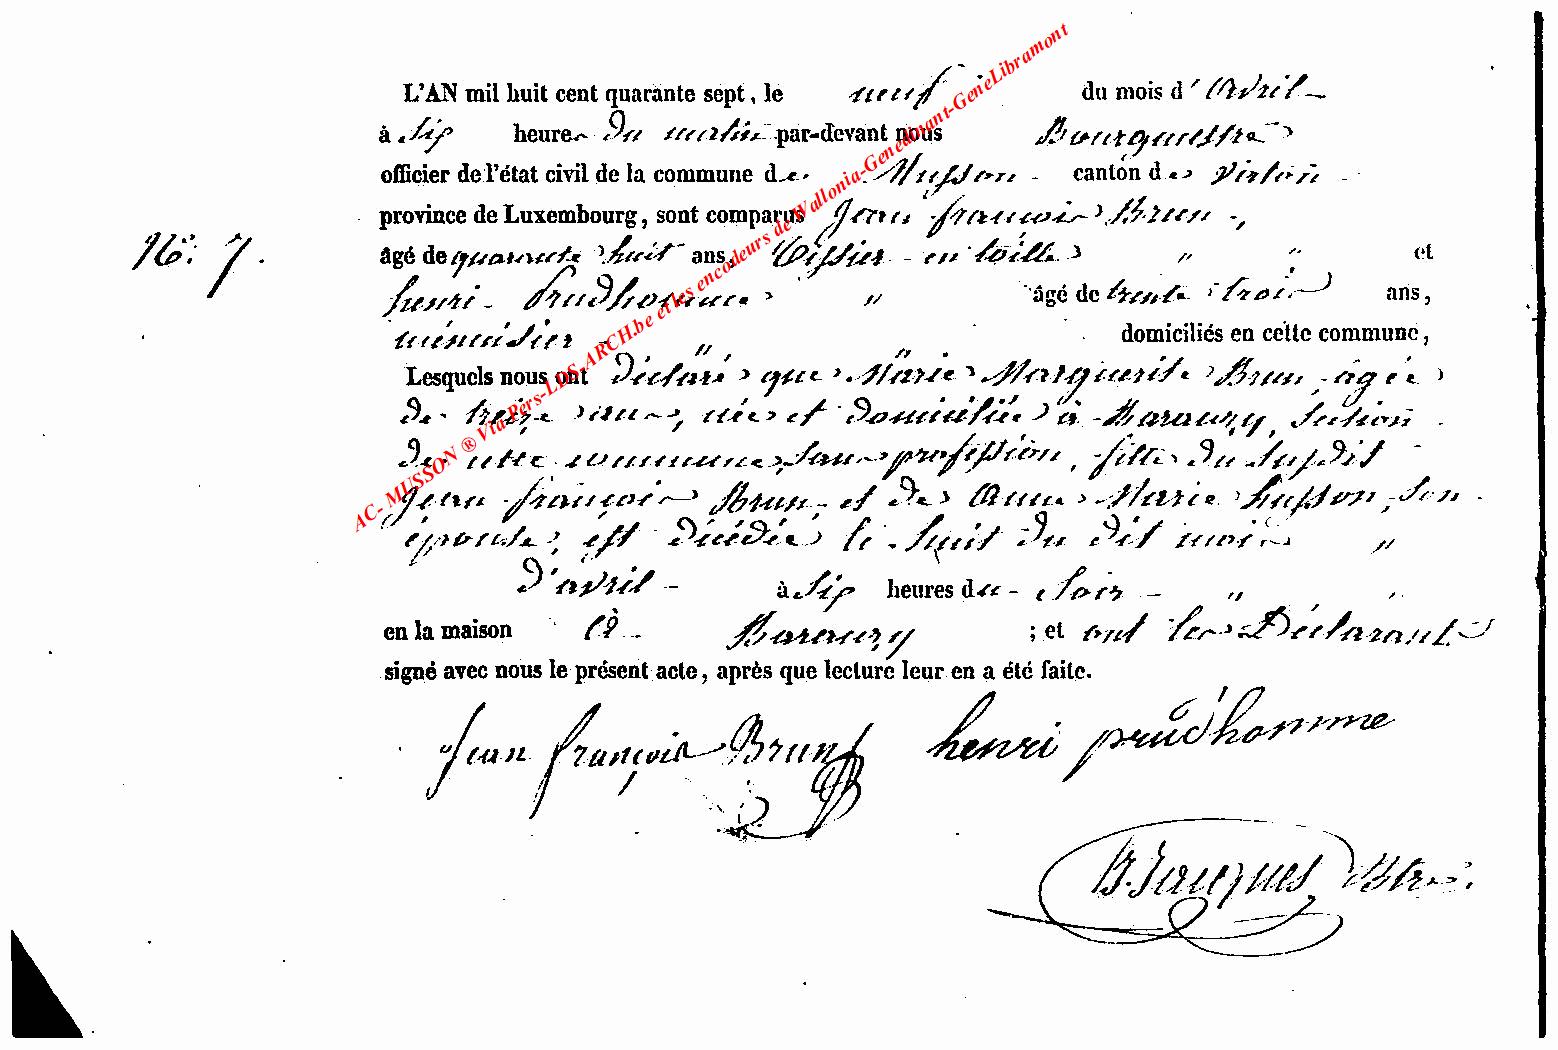 L'AN mil huit cent quarante sept, le neuf du mois d'Avril
à Six heures du matin par-devant nous Bourguestre
officier de l'état civil de la commune de Musson canton de Virton
province de Luxembourg, sont comparus Jean françois Brun,
No. 7.
âgé de quarante huit ans, Tissier en toille " " et
henri Prudhomme " âgé de trente trois ans,
ménuisier " " domiciliés en cette commune,
Lesquels nous ont déclaré que Marie Marguerite Brun, agée
de treize ans, née et domiciliée à Baranzy, Section
de cette commune, sans profession, fille du Susdit
Jean françois Brun, et de Anne Marie husson, son
épouse, est décédée le huit du dit mois "
d'avril à Six heures du Soir " "
en la maison à Baranzy ; et ont les Déclarants
signé avec nous le présent acte, après que lecture leur en a été faite.
Jean françois Brun henri prud'homme
B. Jacques Btre.
AC- MUSSON ® Via Pers-LDS-ARCH.be et les encodeurs de Wallonia-Genedinant-GeneLibramont